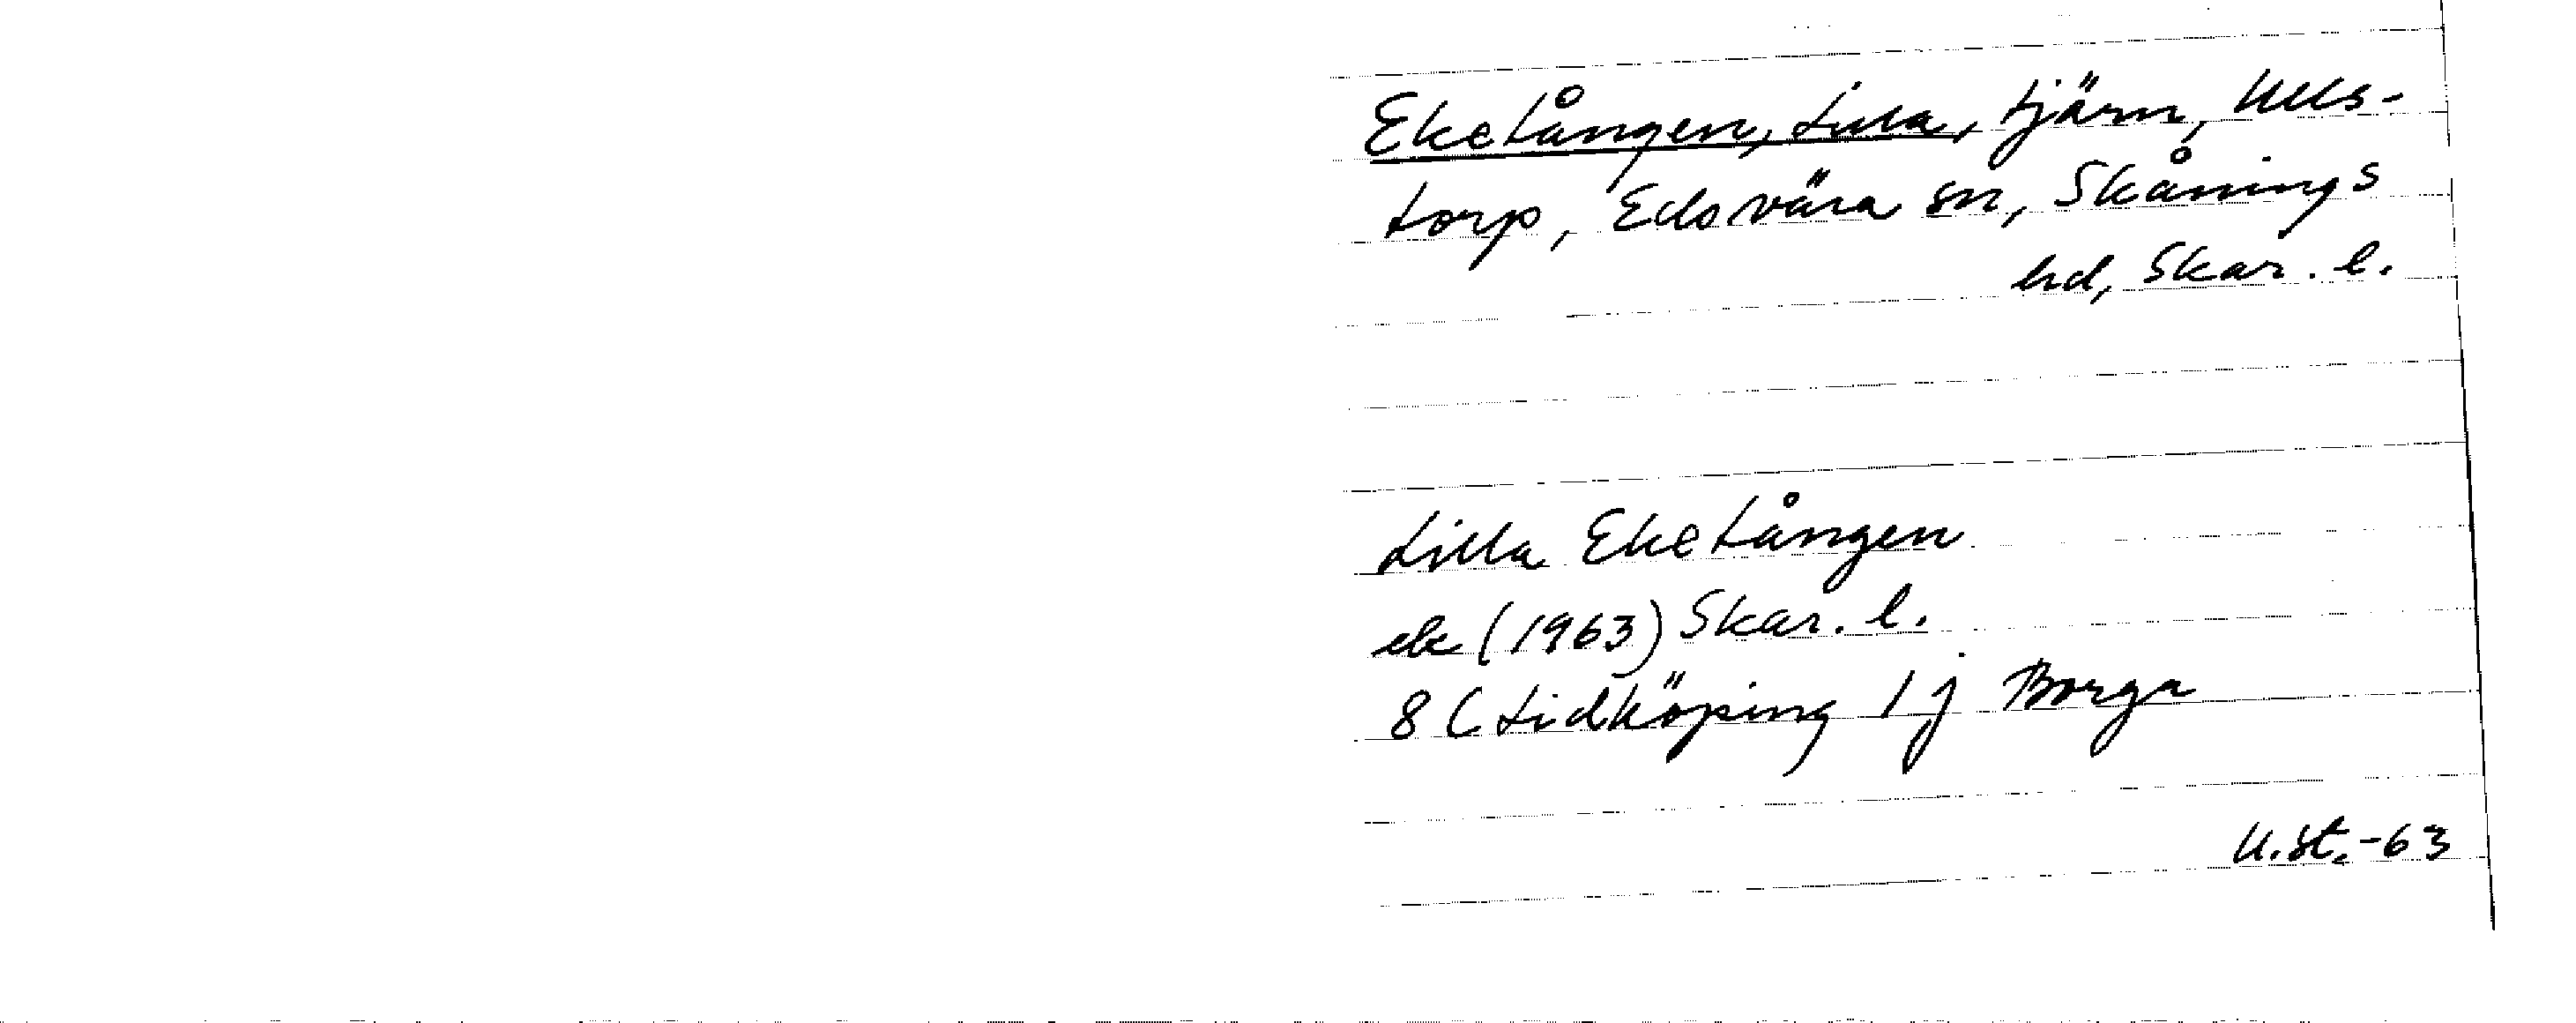 Eketången, Lilla, tjärn, Ulls-
torp, Edsvära sn, Skånings
hd, Skar. l.
Lilla Eketången
ek (1963) Skar. l.
8 C Lidköping 1 j Borga
U.St. -63